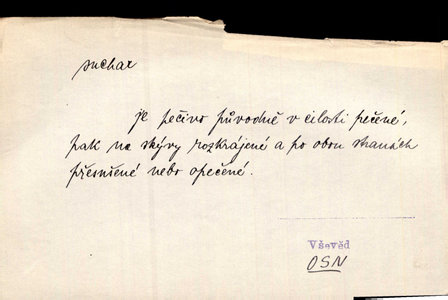 suchar
je pečivo původně v cilosti pečené,
pak na skývy rozkrájené a po obou stranách
přesušené nebo opečené.
Vševěd
OSN